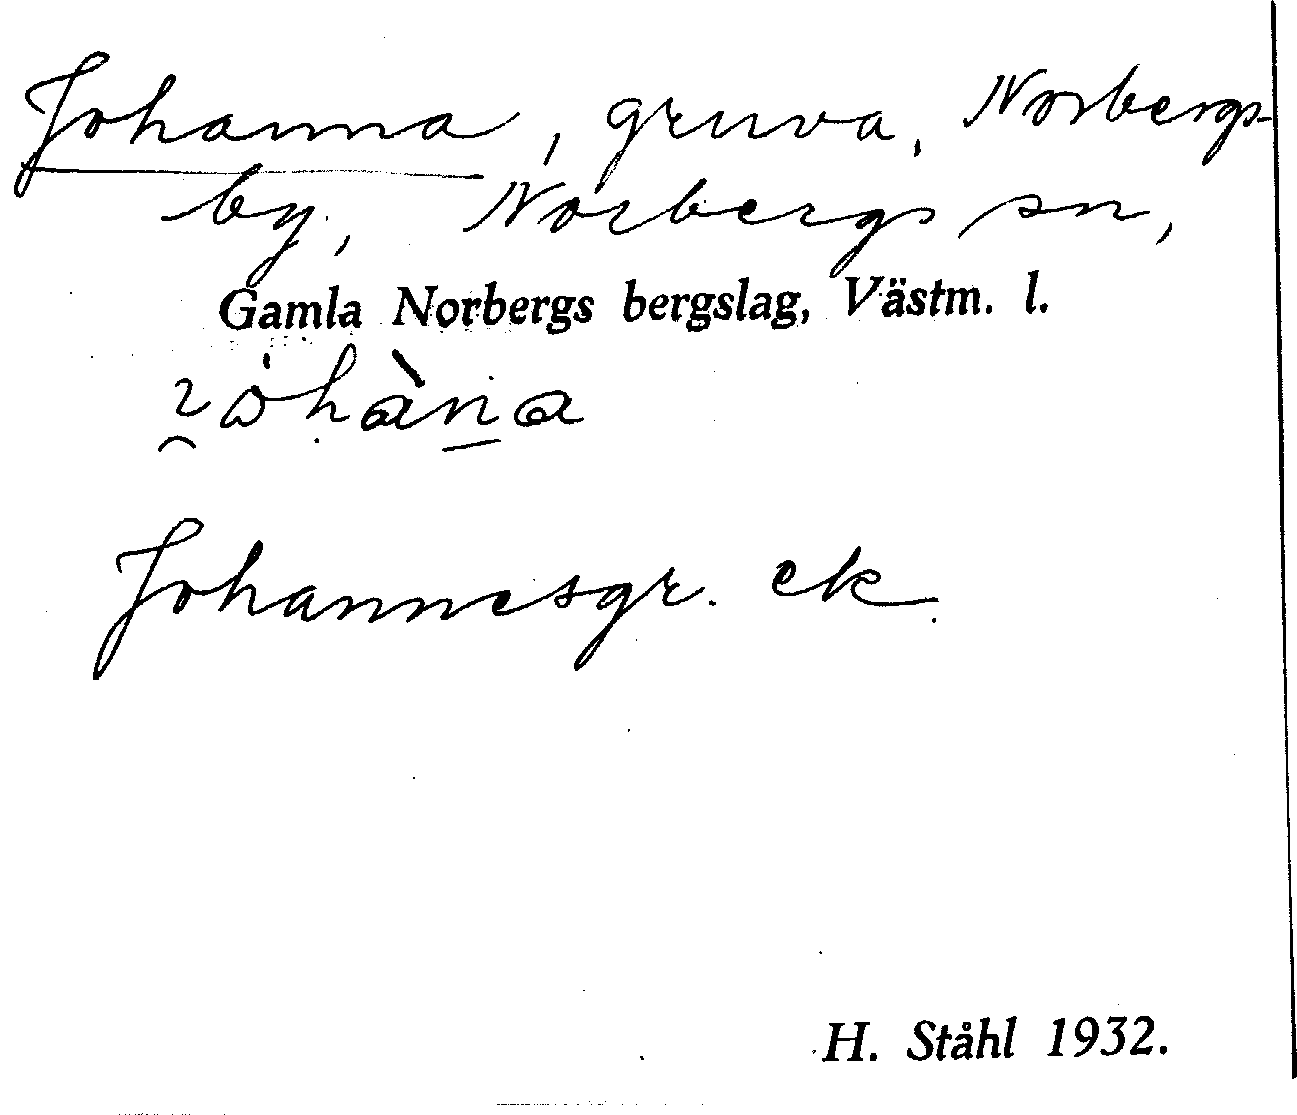 Johanna, gruva, Norbergs-
by, Norbergs sn,
Gamla Norbergs bergslag, Västm. l.
Johannesgr. ek.
H. Ståhl 1932.